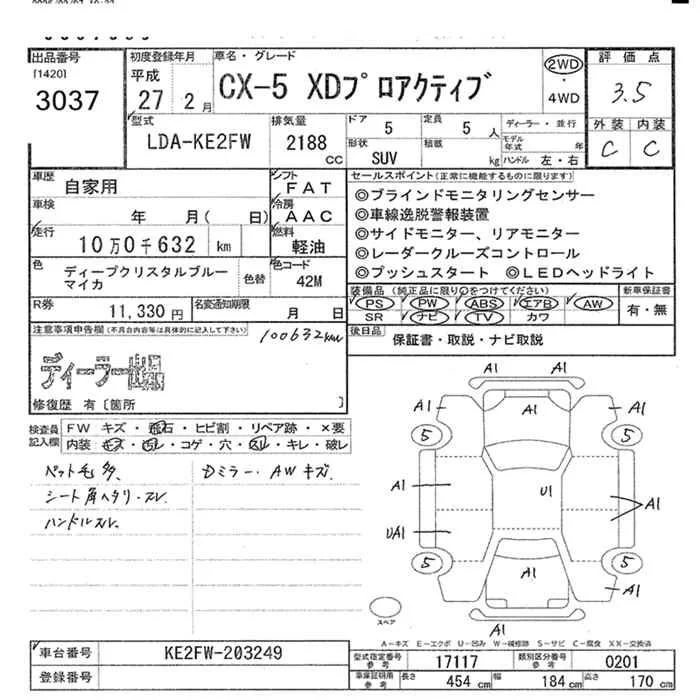 出品番号
[1420]
3037
初度登録年月
平成
27 2 月
車名・グレード
CX-5 XDプロアクティブ
2WD
・
4WD
評価点
3.5
外装 内装
C C
型式
LDA-KE2FW
排気量
2188
CC
ドア
5
定員
5 人
形状
SUV
積載
kg
ディーラー・並行
モデル年式 年
ハンドル 左・右
車歴
自家用
シフト
FAT
車検
年 月( 日)
冷房
AAC
走行
10万0千632 km
燃料
軽油
色
ディープクリスタルブルー
マイカ
色替
色コード
42M
R券
11,330 円
名変通知期限
月 日
セールスポイント(正常に機能するものに限ります)
◎ブラインドモニタリングセンサー
◎車線逸脱警報装置
◎サイドモニター、リアモニター
◎レーダークルーズコントロール
◎プッシュスタート ◎LEDヘッドライト
装備品(純正品に限り○をつけてください)
PS PW ABS エアB AW
SR ナビ TV カワ
新車保証書
有・無
後日品
保証書・取説・ナビ取説
注意事項申告欄(不具合内容等は具体的に記入して下さい)
100632km
修復歴 有〔箇所 〕
検査員
記入欄
FW キズ・飛石・ヒビ割・リペア跡・×要
内装・キズ・汚レ・コゲ・穴・スレ・キレ・破レ
ペット毛多、
シート角ヘタリ・スレ
ハンドルスレ
Dミラー・AWキズ
A1
A1
A1
A1
5
5
A1
U1
A1
UA1
5
5
A1
A1
A1
スペア
A-キズ E-エクボ U-凹み W-補修跡 S-サビ C-腐食 XX-交換済
車台番号
KE2FW-203249
登録番号
型式指定番号
参考
17117
類別区分番号
参考
0201
車庫証明用
参考
長さ
454 cm
幅
184 cm
高さ
170 cm